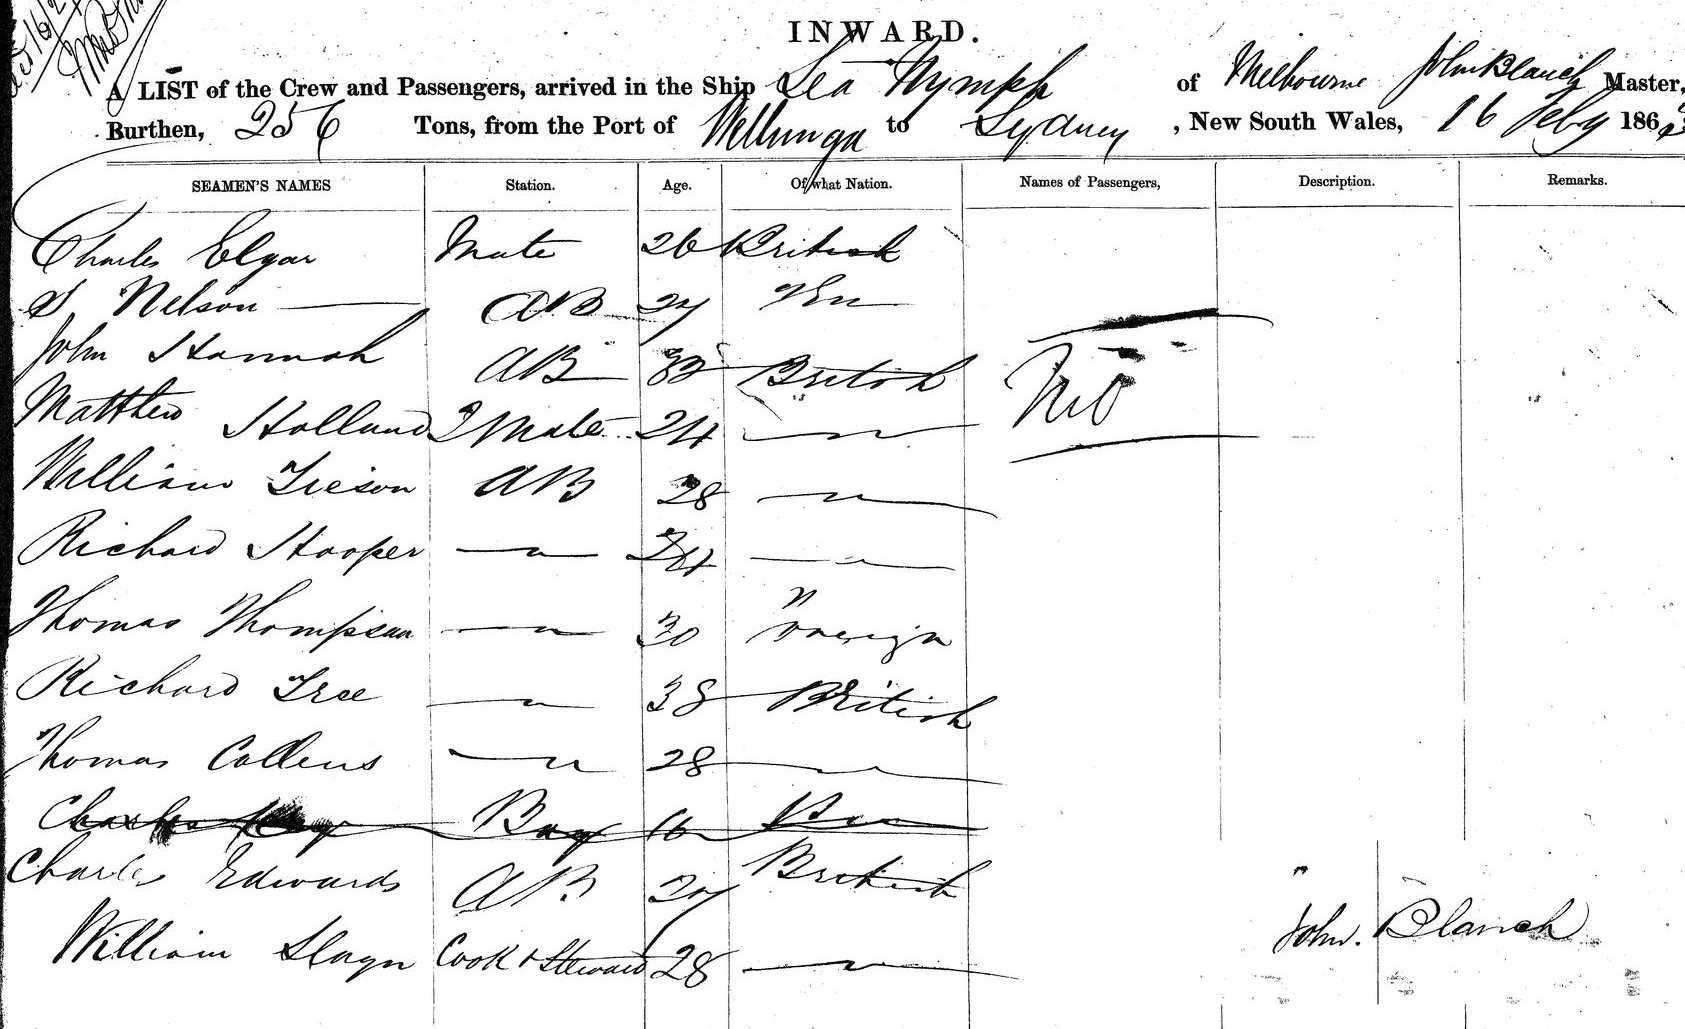 INWARD.
A LIST of the Crew and Passengers, arrived in the Ship Sea Nymph of Melbourne John Blanch Master,
Burthen, 256 Tons, from the Port of Wellunga to Sydney, New South Wales, 16 Feby 186
SEAMEN'S NAMES Station. Age. Of what Nation. Names of Passengers, Description. Remarks.
Charles Elgar Mate 26 British
S Nelson AB 27
John Hannah AB British
Matthew Holland 2 Mate 24 — " —
William AB 28 — " —
Richard Hooper — " — — " —
Thomas Thompson — " — 30
Richard Tree — " — 38 British
Thomas Collens — " — 28 — " —
Charles Boy 16
Charles Edwards AB 27 British
William Cook & Steward 28 — " —
John. Blanch